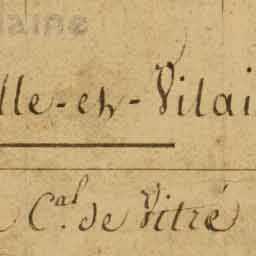 laine
lle-en-Vilai
C.al de Vitré